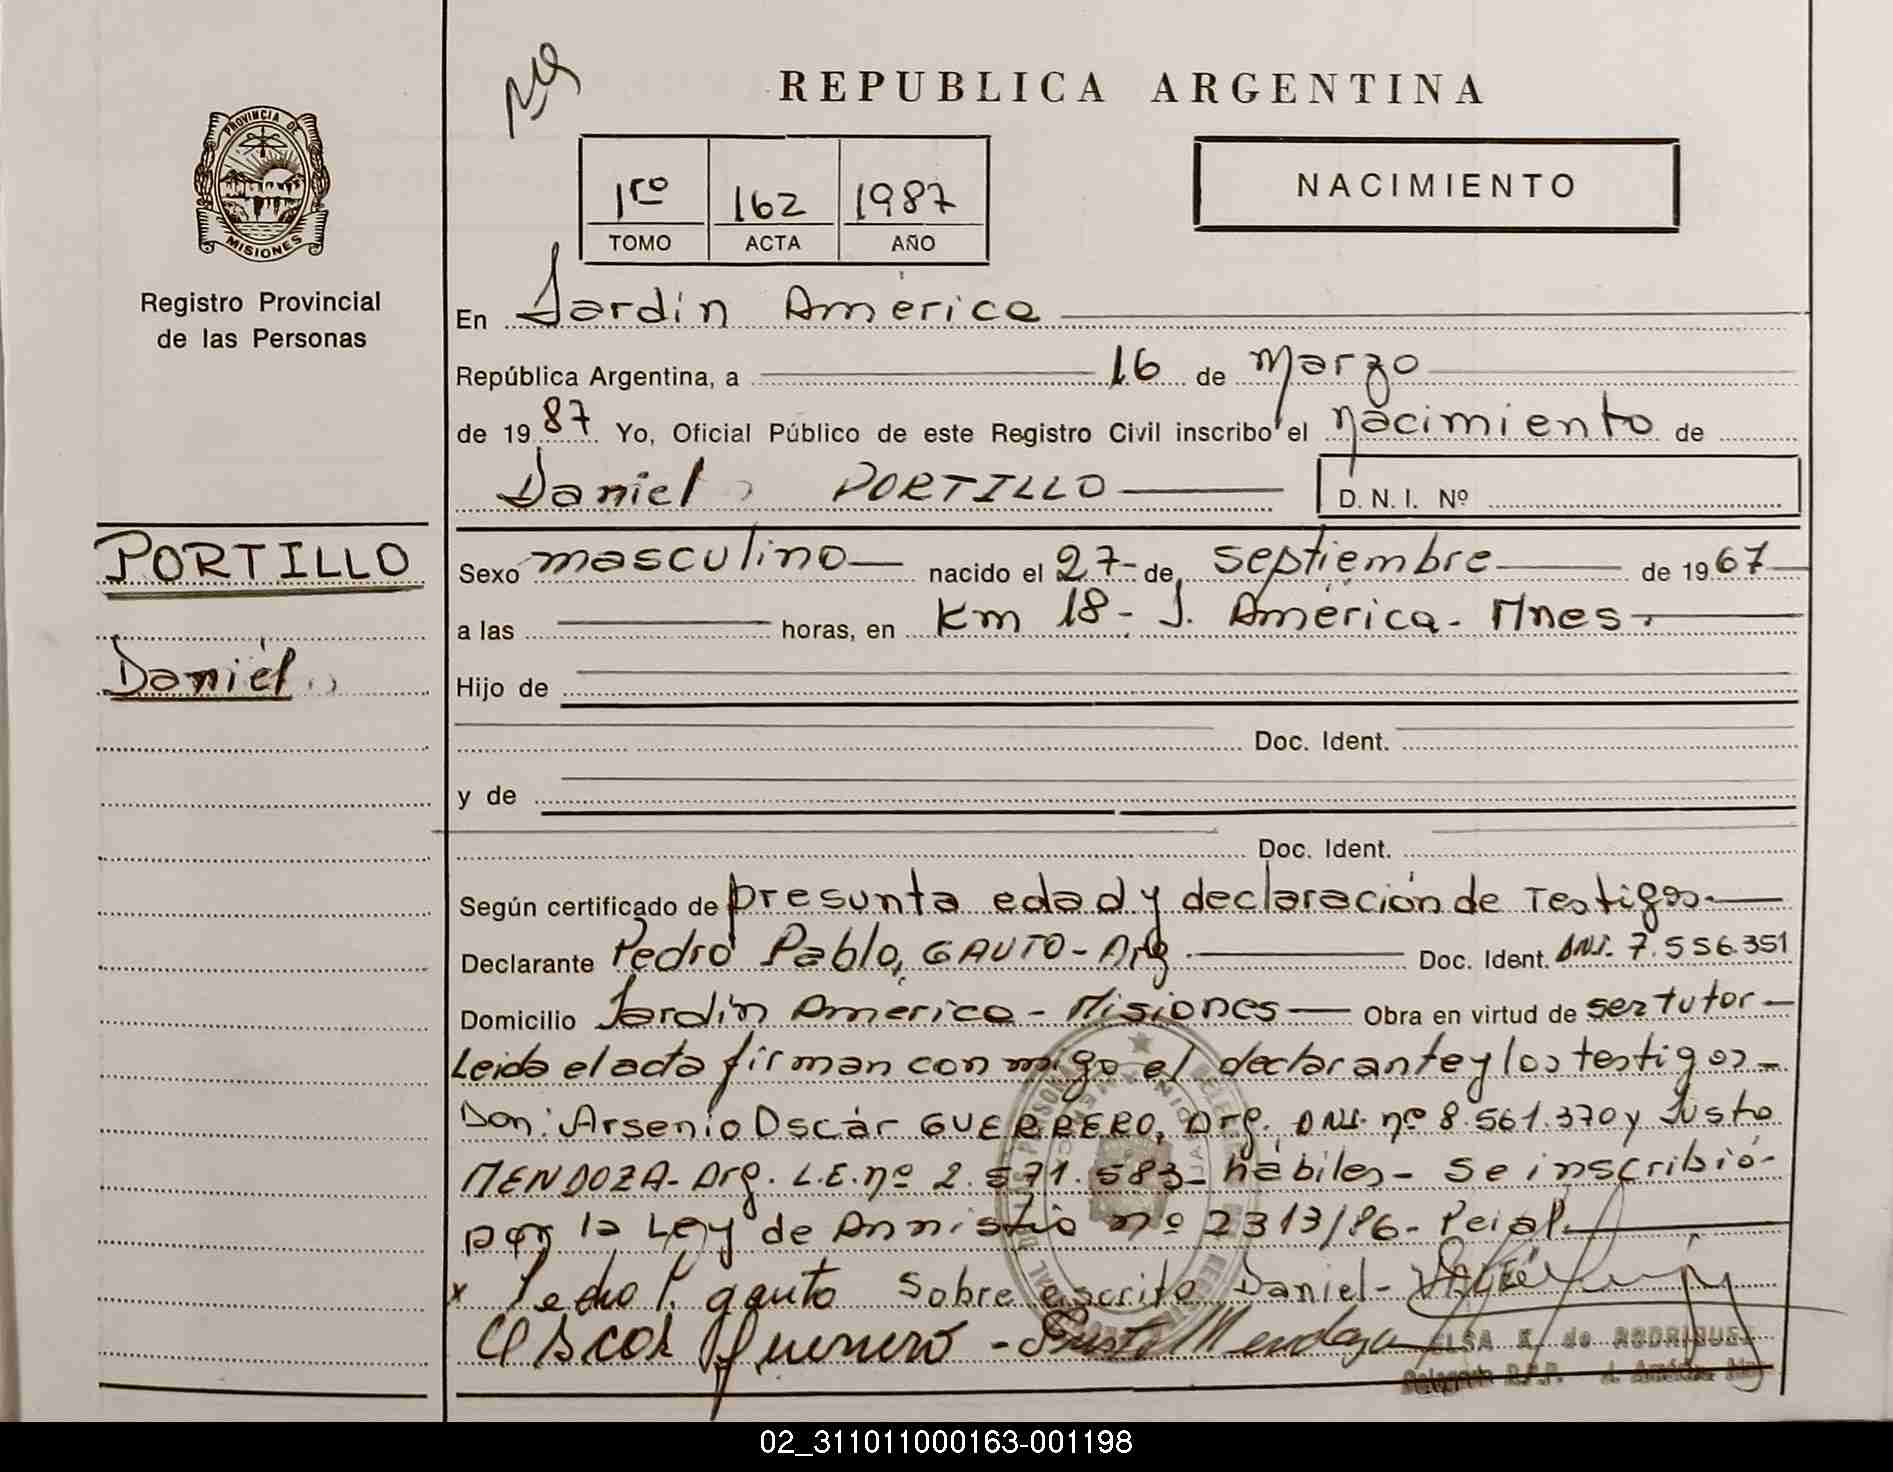 REPUBLICA ARGENTINA
PROVINCIA DE
MISIONES
Registro Provincial
de las Personas
1ro 162 1987
TOMO ACTA AÑO
NACIMIENTO
En Jardín América
República Argentina, a 16 de Marzo
de 1987 Yo, Oficial Público de este Registro Civil inscribo el nacimiento de
Daniel, PORTILLO D.N.I. Nº
PORTILLO
Daniel,
Sexo masculino nacido el 27- de septiembre de 1967
a las horas, en Km 18- J. América- Mnes.
Hijo de
Doc. Ident.
y de
Doc. Ident.
Según certificado de presunta edad y declaración de Testigos.
Declarante Pedro Pablo, GAUTO- Arg. Doc. Ident. DNI. 7.556.351
Domicilio Jardín América- Misiones Obra en virtud de ser tutor
Leida el acta firman conmigo el declarante y los testigos-
Don: Arsenio Oscar GUERRERO, Arg. DNI. nº 8.561.370 y Justo
MENDOZA- Arg. L.E. nº 2.571.583- hábiles- Se inscribió-
por la Ley de Amnistia nº 2313/86- Pcial.
x Pedro P. gauto Sobre escrito Daniel- VALE
Oscar Guerrero - Justo Mendoza
ELSA K. de RODRIGUEZ
Delegada R.P.P. J. América Mnes
02_311011000163-001198